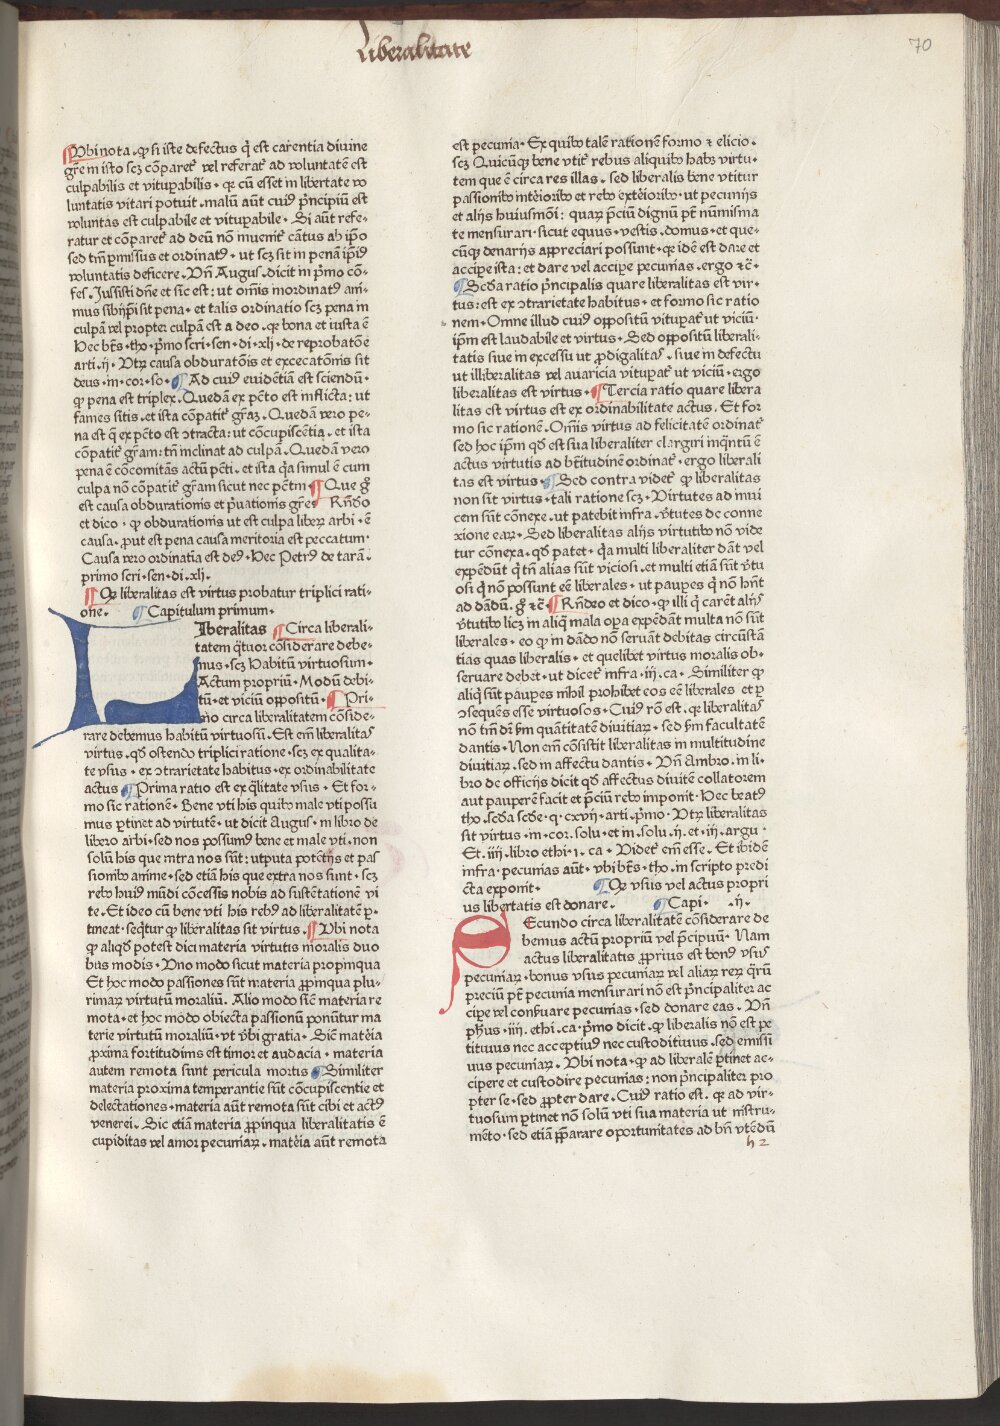 Liberalitate
70
Vbi nota. ꝙ si iste defectus q̄ est carentia diuine
gr̄e in isto scꝫ cōparet᷑ vel referat᷑ ad voluntatē est
culpabilis et vituꝑabilis. qꝛ cū esset in libertate vo
luntatis vitari potuit. malū aūt cuiꝰ p̄ncipiū est
voluntas est culpabile et vituꝑabile. Si aūt refe-
ratur et cōparet᷑ ad deū nō inuenit᷑ cātus ab ip̄o
sed tm̄ ꝑmissus et ordinatꝰ. ut scꝫ sit in penā ip̄iꝰ
voluntatis deficere. Vn̄ Augus. dicit in p̄mo cō-
fes. Jussisti dn̄e et sic est: ut om̄is inordinatꝰ ani-
mus sibijp̄i sit pena. et talis ordinatio scꝫ pena in
culpā vel propter culpā est a deo. qꝛ bona et iusta ē
Hec bt̄s. tho. p̄mo scri. sen. di. xlj. de reprobatōe
arti. ij. Vtꝝ causa obduratōis et excecatōnis sit
deus. in. cor. so. Ad cuiꝰ euidentiā est sciendū.
ꝙ pena est triplex. Quedā ex pc̄to est inflicta: ut
fames sitis. et ista cōpatit᷑ gr̄aꝫ. Quedā vero pe-
na est q̄ ex pc̄to est ↄtracta: ut cōcupiscētia. et ista
cōpatit᷑ gr̄am: tn̄ inclinat ad culpā. Quedā vero
pena ē cōcomitās actū pctī. et ista q̄a simul ē cum
culpa nō cōpatit᷑ gr̄am sicut nec pctm̄ Que gͦ
est causa obdurationis et p̄uationis gr̄e. Rn̄deo
et dico. ꝙ obdurationis ut est culpa liberꝝ arbi. ē
causa. ꝓut est pena causa meritoria est peccatum.
Causa vero ordinatia est deꝰ. Hec Petrꝰ de tarā.
primo scri. sen. di. xlj.
Qꝙ liberalitas est virtus probatur triplici rati-
one. Capitulum primum.
Liberalitas Circa liberali-
tatem q̄tuor cōsiderare debe-
mus. scꝫ Habitū virtuosum.
Actum propriū. Modū debi-
tū. et viciū oppositū. Pri-
mo circa liberalitatem cōside-
rare debemus habitū virtuosū. Est em̄ liberalitas
virtus. qd̄ ostendo triplici ratione. scꝫ ex qualita-
te vsus. ex ↄtrarietate habitus. ex ordinabilitate
actus Prima ratio est ex q̄litate vsus. Et for-
mo sic rationē. Bene vti his quibꝰ male vti possu
mus ꝑtinet ad virtutē. ut dicit Augus. in libro de
libero arbi. sed nos possumꝰ bene et male vti. non
solū his que intra nos sūt: utputa potētijs et pas
sionibꝰ anime. sed etiā his que extra nos sunt. scꝫ
rebꝰ huiꝰ mūdi cōcessis nobis ad sustētationē vi
te. Et ideo cū bene vti his rebꝰ ad liberalitatē ꝑ-
tineat. seq̄tur ꝙ liberalitas sit virtus. Vbi nota
ꝙ aliqd̄ potest dici materia virtutis moralis duo
bus modis. Vno modo sicut materia propinqua
Et hoc modo passiones sūt materia ꝓpinqua plu-
rimaꝝ virtutū moraliū. Alio modo sicut materia re
mota. et hoc modo obiecta passionū ponūtur ma
terie virtutū moraliū. vt v̄bi gratia. Sicut materia
ꝓxima fortitudinis est timor et audacia. materia
autem remota sunt pericula mortis Similiter
materia proxima temperantie sūt cōcupiscentie et
delectationes. materia aūt remota sūt cibi et actꝰ
venerei. Sic etiā materia ꝓpinqua liberalitatis ē
cupiditas vel amor pecuniaꝝ. matēia aūt remota
est pecunia. Ex quibꝰ talē rationē formo ⁊ elicio.
scꝫ Quicūqꝫ bene vtit᷑ rebus aliquibꝰ habꝫ virtu-
tem que ē circa res illas. sed liberalis bene vtitur
passionibꝰ intēioribꝰ et rebꝰ extēioribꝰ. ut pecunijs
et alijs huiusmōi: quaꝝ p̄ciū dignū pt̄ numisma
te mensurari. sicut equus. vestis. domus. et que-
cūqꝫ denarijs appreciari possunt. qꝛ idē est dare et
accipe ista: et dare vel accipe pecunias. ergo ⁊c̄.
Scd̄a ratio p̄ncipalis quare liberalitas est vir-
tus: est ex ↄtrarietate habitus. et formo sic ratio
nem. Omne illud cuiꝰ oppositū vituꝑat᷑ ut viciū.
ip̄m est laudabile et virtus. Sed oppositū liberali-
tatis siue in excessu ut ꝓdigalitas. siue in defectu
ut illiberalitas vel auaricia vituꝑat᷑ ut viciū. ergo
liberalitas est virtus. Tercia ratio quare libera
litas est virtus est ex ordinabilitate actus. Et for
mo sic rationē. Om̄is virtus ad felicitatē ordinat᷑
sed hoc ip̄m qd̄ est sua liberaliter elargiri inq̄ntū ē
actus virtutis ad bt̄itudinē ordinat᷑. ergo liberali
tas est virtus. Sed contra videt᷑ ꝙ liberalitas
non sit virtus. tali ratione scꝫ. Virtutes ad inui
cem sūt cōnexe. ut patebit infra. v̄tutes de conne
xione eaꝝ. Sed liberalitas alijs virtutibꝰ nō vide
tur cōnexa. qd̄ patet. q̄a multi liberaliter dāt vel
expēdūt q̄ tn̄ alias sūt viciosi. et multi etiā sūt v̄tu
osi q̄ nō possunt eē liberales. ut pauꝑes q̄ nō hn̄t
ad dādū. gͦ ⁊c̄ Rn̄deo et dico. ꝙ illi q̄ carēt alijs
v̄tutibꝰ licꝫ in aliq̄ mala oꝑa expēdant multa nō sūt
liberales. eo ꝙ in dādo nō seruāt debitas circūstā
tias quas liberalis. et quelibet virtus moralis ob-
seruare debet. ut dicet᷑ infra. iij. ca. Similiter ꝙ
aliq̄ sūt pauꝑes nihil ꝓhibet eos eē liberales et ꝑ
ↄseqūes esse virtuosos. Cuiꝰ rō est. qꝛ liberalitas
nō tm̄ dr̄ scdm̄ quātitatē diuitiaꝝ. sed scdm̄ facultatē
dantis. Non em̄ cōsistit liberalitas in multitudine
diuitiaꝝ. sed in affectu dantis. Vn̄ Ambro. in li-
bro de officijs dicit qd̄ affectus diuitē collatorem
aut pauperē facit et p̄ciū rebꝰ imponit. Hec beatꝰ
tho. scd̄a scd̄e. q. cxvij. arti. p̄mo. Vtꝝ liberalitas
sit virtus. in. cor. solu. et in. solu. ij. et. iij. argu.
Et. iiij. libro ethi. 1. ca. Videt᷑ em̄ esse. Et ibidē
infra. pecunias aūt. vbi bt̄s. tho. in scripto predi
cta exponit. Qꝙ vsus vel actus propri
us libertatis est donare. Capi. .ij.
Secundo circa liberalitatē cōsiderare de
bemus actū propriū vel p̄cipuū. Nam
actus liberalitatis ꝓprius est bonꝰ vsus
pecuniaꝝ. bonus vsus pecuniaꝝ vel aliaꝝ reꝝ q̄rū
preciū pt̄ pecunia mensurari nō est p̄ncipaliter ac
cipe vel conseruare pecunias. sed donare eas. Vn̄
ph̄us. iiij. ethi. ca. p̄mo dicit. ꝙ liberalis nō est pe
titiuus nec acceptiuꝰ nec custoditiuus. sed emissi
uus pecuniaꝝ. Vbi nota. ꝙ ad liberalē ꝑtinet ac-
cipere et custodire pecunias: non p̄ncipaliter pro
pter se. sed ꝓpter dare. Cuiꝰ ratio est. qꝛ ad vir-
tuosum ꝑtinet nō solū vti sua materia ut instru-
mēto. sed etiā p̄parare oportunitates ad bn̄ vtēdū
h 2